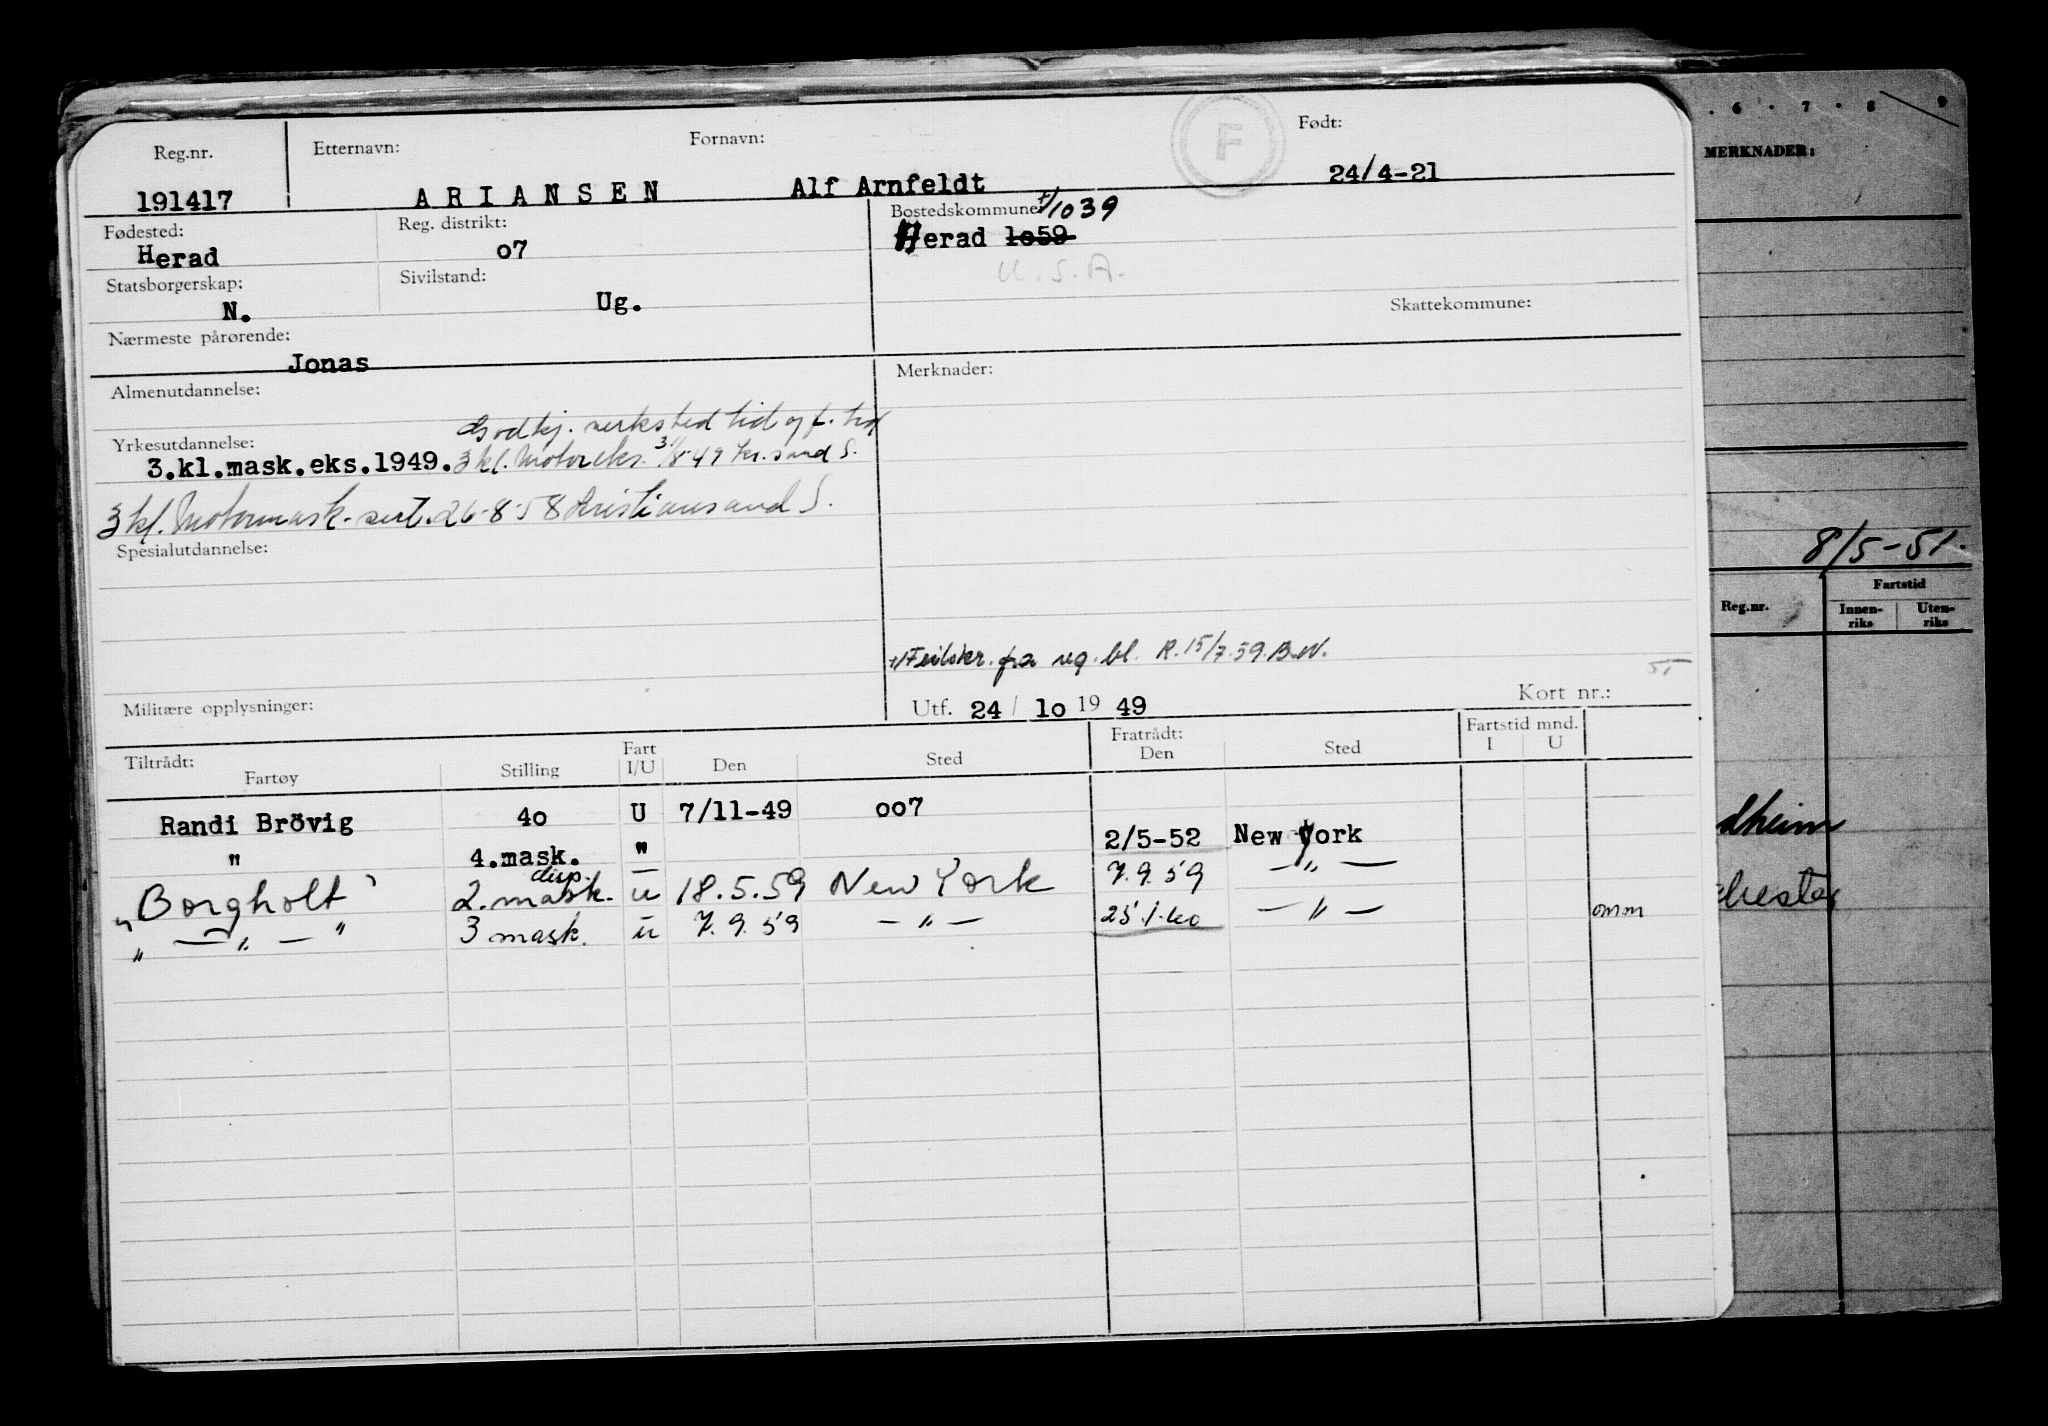 Reg.nr. Etternavn: Fornavn: F Født:
191417 ARIANSEN Alf Arnfeldt 24/4-21
Fødested: Reg. distrikt: Bostedskommune: +/1039
Herad o7 Herad lo59
Statsborgerskap: Sivilstand: U.S.A.
N. Ug. Skattekommune:
Nærmeste pårørende:
Jonas
Almenutdannelse: Merknader:
Godkj. verksted tid og f. tid
Yrkesutdannelse:
3.kl.mask.eks.1949. 3 kl. Motoreks. 3/8-49 Kr.sand S.
3 kl. Motormask. sert. 26-8-58 Kristiansand S.
Spesialutdannelse:
+/Feilskr. fra reg. bl. R. 15/7.59. B.N.
Militære opplysninger: Utf. 24 / lo 19 49 Kort nr.:
Tiltrådt: Fart Fratrådt: Fartstid mnd.
Fartøy Stilling I/U Den Sted Den Sted I U
Randi Brövig 4o U 7/11-49 oo7
" 4.mask. " 2/5-52 New York
"Borgholt" 2. mask. disp. u 18.5.59 New York 7.9.59 — " —
" — " — " 3 mask. u 7.9.59 — " — 25.1.60 — " — omm
6 · 7 · 8 9
MERKNADER:
8/5-51.
Reg.nr. Fartstid
Innen-riks Uten-riks
dheim
chester